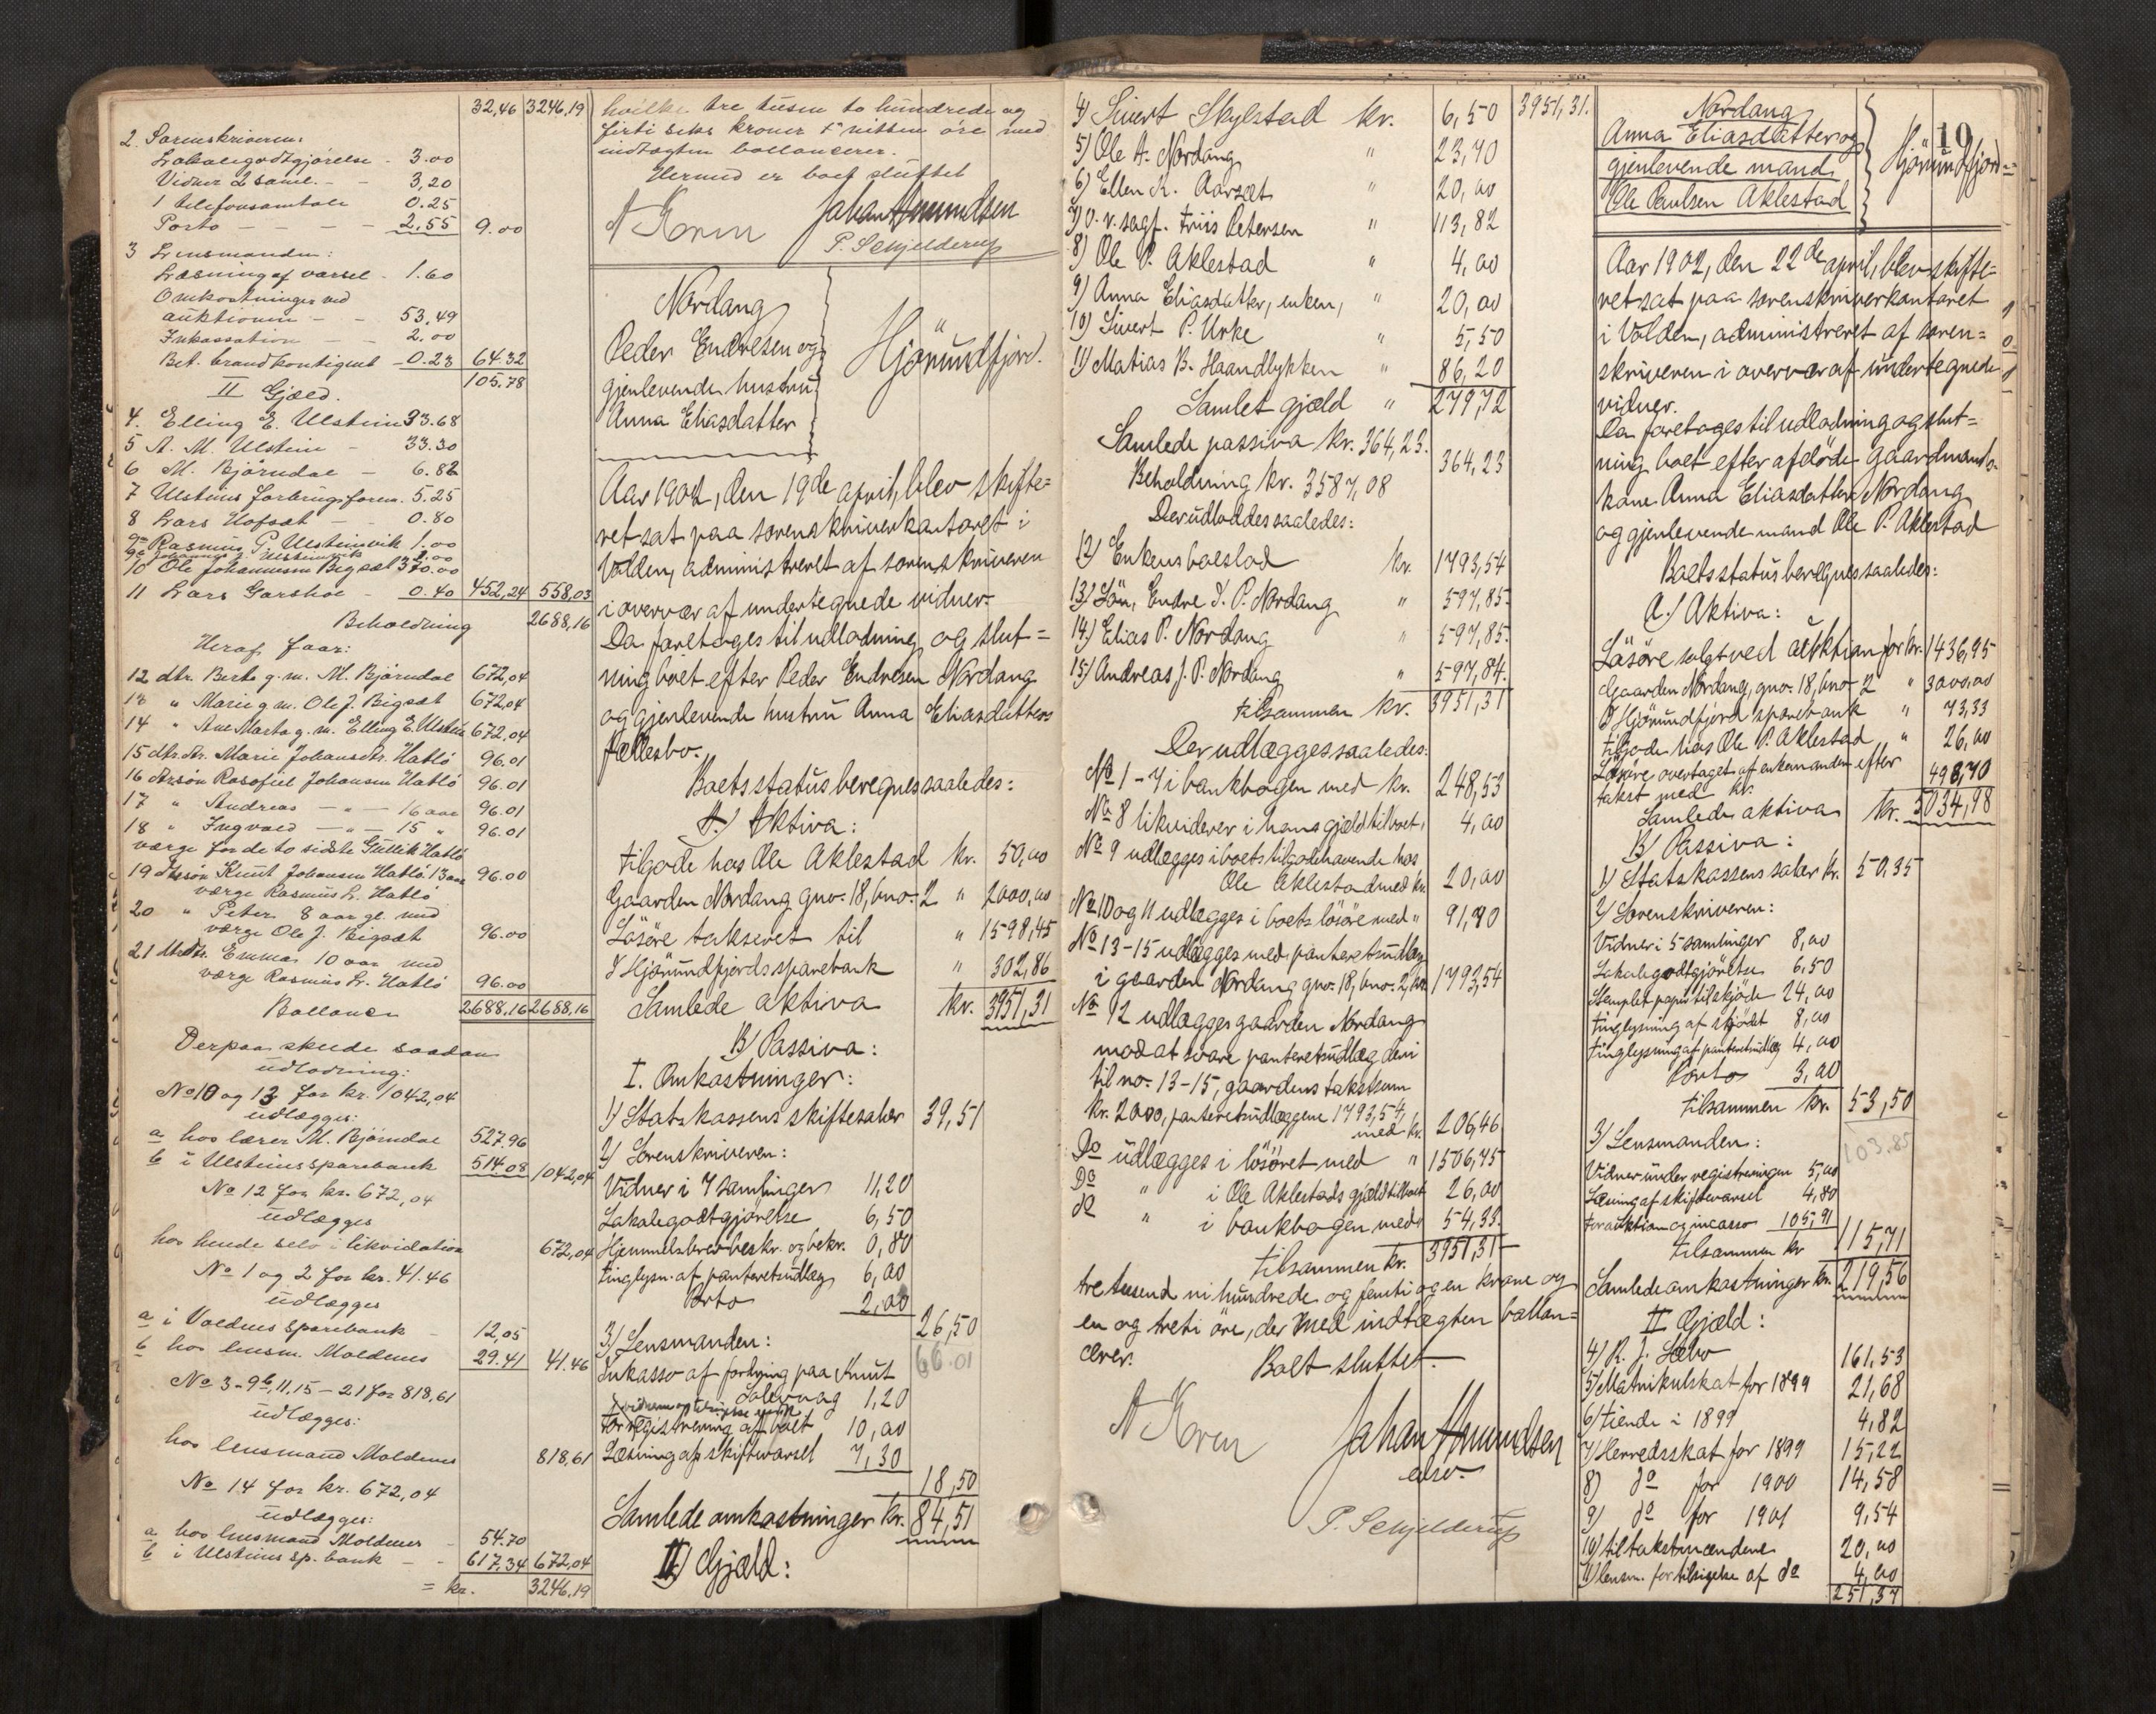 32,46 3246,19
2. Sorenskriveren:
Lokalegodtgjörelse - 3.00
Vidner 2 saml. - - 3,20
1 telefonsamtale 0.25
Porto - - - - 2.55 9.00
3 Lensmanden:
Læsning af varsel - 1.60
Omkostninger ved
auktionen - - 53.49
Inkassation - - 2.00
Bet. brandkontigent - 0.23 64.32
105.78
II Gjæld.
4. Elling E. Ulstein 33.68
5 A. M. Ulstein - 33.30
6 M. Björndal - 6.82
7 Ulsteins forbrugsforen. 5.25
8 Lars Hofsæt - - 0.80
9a Rasmus P. Ulsteinvik 1.00
9b Johannes J. Ulsteinvik 1.00
10 Ole Johannesen Bigsæt 370.00
11 Lars Garshol - 0.40 452,24 558,03
Beholdning 2688,16
Heraf faar:
12 dtr. Berte g. m. M. Björndal 672,04
13 " Marie g. m. Ole J. Bigsæt 672,04
14 " Ane Marta g. m. Elling E. Ulstein 672,04
15 dtr.dtr. Marie Johansdtr. Hatlö 96.01
16 dtrsön Rasofiel Johansen Hatlö 96.01
17 " Andreas - " - 16 aar 96.01
18 " Ingvald - " - 15 " 96.01
værge for de to sidste Gullik Hatlö
19 dtrsön Knut Johansen Hatlö 13 aar 96.00
værge Rasmus L. Hatlö
20 " Peter 8 aar gl. med
værge Ole J. Bigsæt 96.00
21 dtrdtr. Emma 10 aar med
værge Rasmus L. Hatlö 96.00
Ballance 2688,16 2688,16
Derpaa skede saadan
udlodning:
No 10 og 13 for kr. 1042,04
udlægges:
a hos lærer M. Björndal 527.96
b i Ulsteins sparebank 514.08 1042,04
No 12 for kr. 672,04
udlægges
hos hende selv i likvidation 672,04
No 1 og 2 for kr. 41.46
udlægges
a i Voldens sparebank - 12,05
b hos lensm. Moldenes 29.41 41.46
No 3-9b, 11, 15-21 for 818,61
udlægges:
hos lensmand Moldenes 818,61
No 14 for kr. 672,04
udlægges:
a hos lensmand Moldenes - 54.70
b i Ulsteins sp. bank - - 617,34 672,04
= kr. 3246,19
hvilke tre tusen to hundrede og
firti seks kroner & nitten öre med
indtægten ballancerer.
Hermed er boet sluttet
N Koren Johan Amundsen
P. Schjelderup
Nordang
Peder Endresen og
gjenlevende hustru
Anna Eliasdatter
Hjörundfjord.
Aar 1902, den 19de april, blev skifte=
ret sat paa sorenskriverkontoret i
Volden, administreret af sorenskriveren
i overvær af undertegnede vidner.
Da foretoges til udlodning og slut=
ning boet efter Peder Endresen Nordang
og gjenlevende hustru Anna Eliasdatters
fællesbo.
Boets status beregnes saaledes:
A.) Aktiva:
tilgode hos Ole Aklestad kr. 50,00
Gaarden Nordang gno. 18, bno. 2 " 2000,00
Lösöre takseret til " 1598,45
I Hjörundfjords sparebank " 302,86
Samlede aktiva kr. 3951,31
B) Passiva:
I. Omkostninger:
1) Statskassens skiftesaler 39,51
2) Sorenskriveren:
Vidner i 7 samlinger 11,20
Lokalegodtgjörelse 6,50
Hjemmelsbrev beskr. og bekr. 0,80
tinglysn. af panteretsudlæg 6,00
Porto 2,00
26,50
66.01
3) Lensmanden:
Inkasso af fordring paa Knut
Solevaag 1,20
for registrering af boet 10,00
Læsning af skiftevarsel 7,30
18,50
Samlede omkostninger kr. 84,51
II) Gjæld:
4) Sivert Skylstad kr. 6,50 3951,31.
5) Ole A. Nordang " 23,70
6) Ellen K. Aarsæt " 20,00
7) O. r. sagf. Friis Petersen " 113,82
8) Ole P. Aklestad " 4,00
9) Anna Eliasdatter, enken, " 20,00
10) Sivert P. Urke " 5,50
11) Matias B. Haandlykken " 86,20
Samlet gjæld " 279,72
Samlede passiva kr. 364,23. 364,23
Beholdning kr. 3587,08
Der udloddes saaledes:
12) Enkens boeslod kr. 1793,54
13) Sön, Endre I. P. Nordang " 597,85.
14) Elias P. Nordang " 597,85.
15) Andreas J. P. Nordang " 597,84.
tilsammen kr. 3951,31
Der udlægges saaledes:
No 1 - 7 i bankbogen med kr. 248,53
No 8 likviderer i hans gjæld til boet, 4,00
No 9 udlægges i boets tilgodehavende hos
Ole Aklestad med kr. 20,00
No 10 og 11 udlægges i boets lösöre med " 91,70
No 13-15 udlægges med panteretsudlæg
i gaarden Nordang gno. 18, bno. 2, kr. 1793,54
No 12 udlægges gaarden Nordang
mod at svare panteretsudlæg deri
til no. 13-15, gaardens takstsum
kr. 2000, panteretsudlæggene 1793,54,
med kr. 206,46
Do udlægges i lösöret med " 1506,75
Do " i Ole Aklestads gjæld til boet 26,00
do " i bankbogen med 54,33.
tilsammen kr. 3951,31
tre tusend ni hundrede og femti og en krone og
en og treti öre, der med indtægten ballan=
cerer.
Boet sluttet.
N Koren Johan Amundsen
edsv.
P. Schjelderup
19
Nordang
Anna Eliasdatter og
gjenlevende mand
Ole Paulsen Aklestad
Hjörundfjord=
Aar 1902, den 22de april, blev skifte=
ret sat paa sorenskriverkontoret
i Volden, administreret af soren=
skriveren i overvær af undertegnede
vidner.
Da foretoges til udlodning og slut=
ning boet efter afdöde gaardmands=
kone Anna Eliasdatter Nordang
og gjenlevende mand Ole P. Aklestad
Boets status beregnes saaledes:
A.) Aktiva:
Lösöre solgt ved auktion for kr. 1436,95
Gaarden Nordang, gno. 18, bno. 2 " 3000,00
I Hjörundfjord sparebank " 73,33
tilgode hos Ole P. Aklestad " 26,00
Lösöre overtaget af enkemanden efter
takst med kr. 498,70
Samlede aktiva kr. 5034,98
B) Passiva:
1) Statskassens saler kr. 50,35
2) Sorenskriveren:
Vidner i 5 samlinger 8,00
Lokalegodtgjörelse 6,50
Stemplet papir til skjöde 24,00
tinglysning af skjödet 8,00
tinglysning af panteretsudlæg 4,00
Porto 3,00
tilsammen kr. 53,50
103.85
3) Lensmanden:
Vidner under registreringen 5,00
Læsning af skiftevarsel 4,80
for auktion og incasso 105,91
tilsammen kr 115,71
Samlede omkostninger kr. 219,56
II Gjæld:
4) R. J. Sæbö 161,53
5) Matrikulskat for 1899 21,68
6) tiende i 1899 4,82
7) Herredsskat for 1899 15,22
8) do for 1900 14,58
9) do for 1901 9,54
10) til takstmændene 20,00
11) lensm. for tilsigelse af do 4,00
251,37